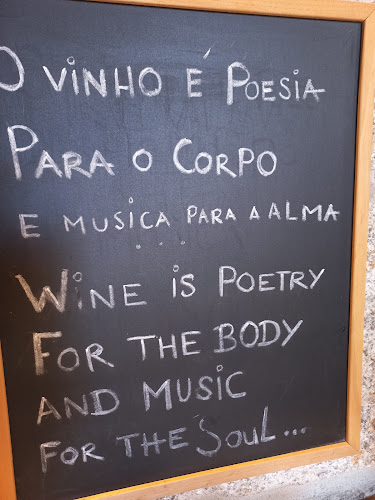 O VINHO É POESIA
PARA O CORPO
E MUSICA PARA A ALMA
...
WINE IS POETRY
FOR THE BODY
AND MUSIC
FOR THE SOUL...